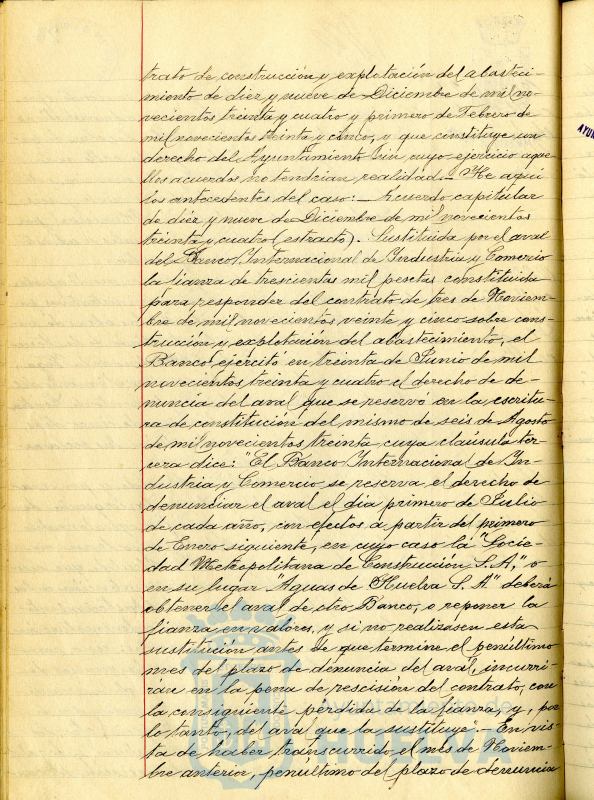 trato de construcción y explotación del abasteci-
miento de diez y nueve de Diciembre de mil no-
vecientos treinta y cuatro y primero de Febrero de
mil novecientos treinta y cinco, y que constituye un
derecho del Ayuntamiento sin cuyo ejercicio aque-
llos acuerdos no tendrian realidad.- He aqui
los antecedentes del caso:- Acuerdo capitular
de diez y nueve de Diciembre de mil novecientos
treinta y cuatro (extracto). Sustituida por el aval
del Banco Internacional de Industria y Comercio
la fianza de trescientas mil pesetas constituida
para responder del contrato de tres de Noviem-
bre de mil novecientos veinte y cinco sobre cons-
trucción y explotación del abastecimiento, el
Banco ejercitó en treinta de Junio de mil
novecientos treinta y cuatro el derecho de de-
nuncia del aval que se reservó en la escritu-
ra de constitución del mismo de seis de Agosto
de mil novecientos treinta cuya claúsula ter-
cera dice: "El Banco Internacional de In-
dustria y Comercio se reserva el derecho de
denunciar el aval el dia primero de Julio
de cada año, con efectos a partir del primero
de Enero siguiente, en cuyo caso la "Socie-
dad Metropolitana de Construcción S.A," o
en su lugar "Aguas de Huelva S.A" deberá
obtener el aval de otro Banco, o reponer la
fianza en valores, y si no realizasen esta
sustitución antes de que termine el penúltimo
mes del plazo de denuncia del aval, incurri-
rán en la pena de rescisión del contrato, con
la consiguiente pérdida de la fianza, y, por
lo tanto, del aval que la sustituye".- En vis-
ta de haber transcurrido el mes de Noviem-
bre anterior, penúltimo del plazo de denuncia
AYUN
HUELVA